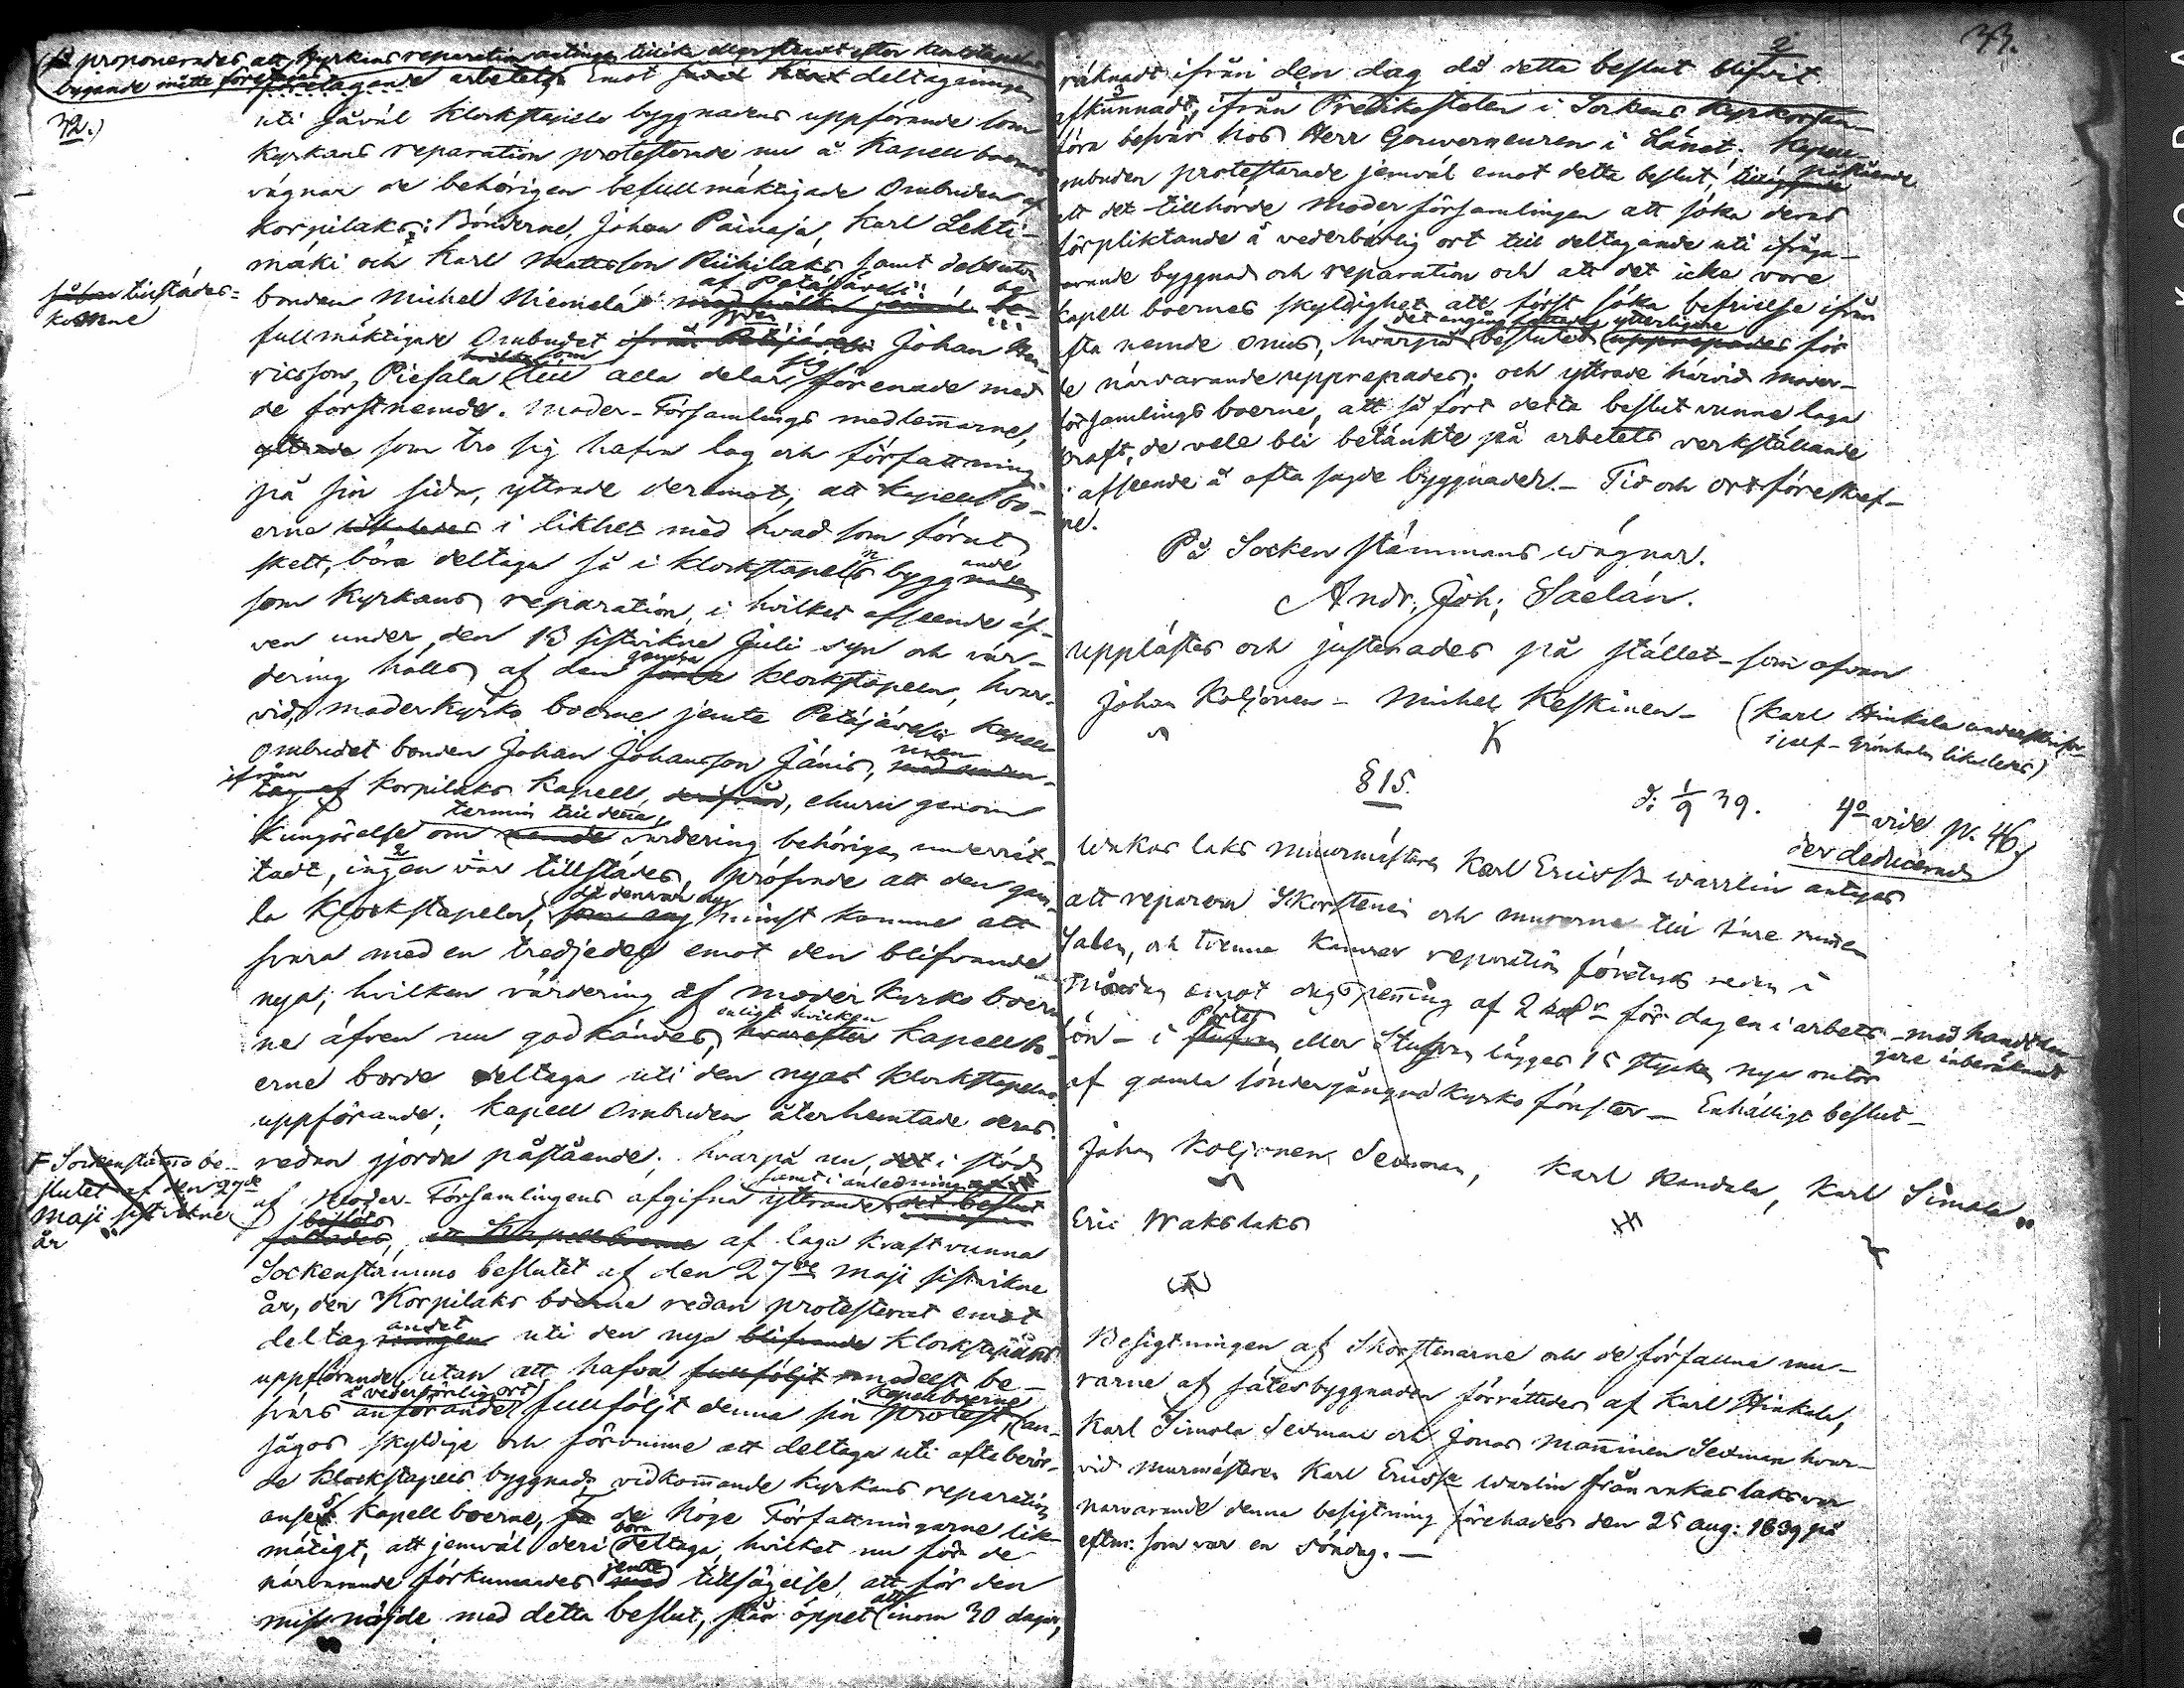 proponerades, att Kyrkans reparation antingen tillika eller straxt efter klockstapelns
bygande måtte företagas
företagande arbetets Emot deltagningen
32.)
uti såväl Klockstapels byggnadens uppförande som
Kyrkans reparation protesterade nu å Kapellboernes
vägnar de behörigen befullmäktigade Ombuden af
Korpilaks: Bönderne, Johan Painaja, Karl Lehti-
mäki och Karl Mattsson Riihilaks samt
såsom tillstädes-
komne
bonden Michel Niemelä af Petäjävesi be-
fullmäktigade Ombudet ifrån Petäjävesi Johan Hen-
ricsson Piesala hvilka som till alla delar sig förenade med
de förstnemde. Moder-Församlings medlemmarne,
yttrade som tro sig hafva lag och författning
på sin sida, yttrade deremot, att Kapellbo-
erne i likhet med hvad som förut
skett, böra deltaga så i klockstapelns byggande
som Kyrkans reparation, i hvilket afseende äf-
ven under den 13 sistvikne Juli syn och vär-
dering hölls af den gamla klockstapeln, hvar-
vid moderkyrko boerne jemte Petäjävesi Kapell
Ombudet bonden Johan Johansson Jänis, men
ifrån Korpilaks Kapell, derifrån, ehuru genom
Kungörelse om termin till denna värdering behörigen underrät-
tadt, ingen var tillstädes, pröfvade att den gam-
la Klockstapeln, minst kunna att
svara med en tredjedel emot den blifvande
nya; hvilken värdering af moder Kyrko boer-
ne äfven nu godkändes, enligt hvilken hvarefter Kapellbo-
erne borde deltaga uti den nya Klockstapelns
uppförande; Kapell Ombuden återhemtade deras
redan gjorda påstående; hvarpå nu, i stöd
F Sockenstämmo be-
slutet af den 27de
Maji sistvikne
år
af Moder-Församlingens afgifna yttrande samt i anledning af det beslut
fattades, Kapellboerne af laga kraft vunna
Sockenstämmo beslutet af den 27de Maji sistvikne
år, den Korpilaks boerne redan protesterat emot
deltagandet uti den nya blifvande Klockstapelns
uppförande, utan att hafva fullföljt medelst be-
svärs anförande å vederbörlig ort fullföljt denna sin protest, Kapellboerne an-
sågos skyldige och förvunne att deltaga uti oftaberör-
de klockstapels byggnad; vidkommande Kyrkans reparation
anses Kapell boerne, de Höge Författningarne lik-
mätigt, att jemväl deri böra deltaga, hvilket nu för de
närvarande förkunnades jemte tillsägelse, att för den
missnöjde med detta beslut, står öppet att inom 30 dagar,
33.
räknadt ifrån den dag då detta beslut blifvit
afkunnadt, ifrån Predikostolen i Sockens Kyrkor
föra besvär hos Herr Gouverneuren i Länet; Kapell-
ombuden protesterade jemväl emot detta beslut, påstående
att det tillhörde moderförsamlingen att söka deras
förpliktande å vederbörlig ort till deltagande uti ifråga-
varande byggnad och reparation och att det icke vore
Kapell boernes skyldighet att först söka befrielse ifrån
ofta nemde onus, hvarpå beslutet ytterligare för
de närvarande upprepades; och yttrade härvid moder-
församlings boerne, att så fort detta beslut vunne laga
kraft, de vele bli betänkte på arbetets verkställande
i afseende å ofta sagde byggnader. Tid och ort föreskref-
ne.
På Sockenstämmans wägnar.
Andr: Joh: Saelán.
Upplästes och justerades på stället som ofvan
Johan Koljonen - Michel Keskinen - (Karl Hinkala underskrifvit
sjelf - Grönholm likaledes)
§ 15.
d: 1/9 39.
4o vide p. 46.)
der deducerad
Wakas laks muurmästaren Karl Ericss. Warrlin antages
att reparera Skorstenen och murarne till
Salen, och tvenne Kamrar reparation företages redan i
Måndag emot dagspenning af 2 för dagen i arbets- med handtlan-
gare inberäknadt
lön - i Porten eller Stufvan lägges 15 stycken nya rutor
af gamla söndergångna Kyrko fönster - Enhälligt beslut -
Johan Koljonen Sexman, Karl Randala, Karl Simola
Eric Wakslaks
Besigtningen af Skorstenarne och de förfallna mu-
rarne af sätesbyggnaden förrättades af Karl Hinkala,
Karl Simola Sexman och Jonas Manninen Sexman hvar-
vid murmästaren Karl Ericss. Warlin från wakas laks var
narvarande denna besigtning förehades den 25 aug: 1839 på
eftm: som var en söndag. -